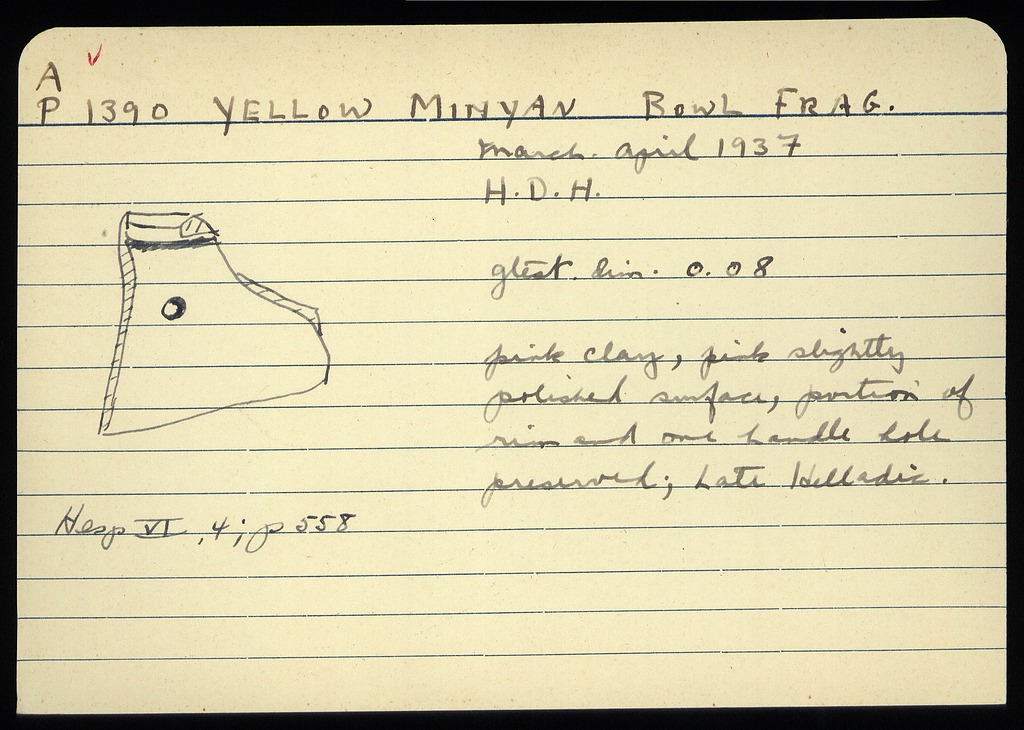 A
P 1390 YELLOW MINYAN BOWL FRAG.
March - April 1937
H.D.H.
gtest. dim. 0.08
pink clay, pink slightly
polished surface, portion of
rim and one handle hole
preserved; Late Helladic.
Hesp VI, 4; p 558